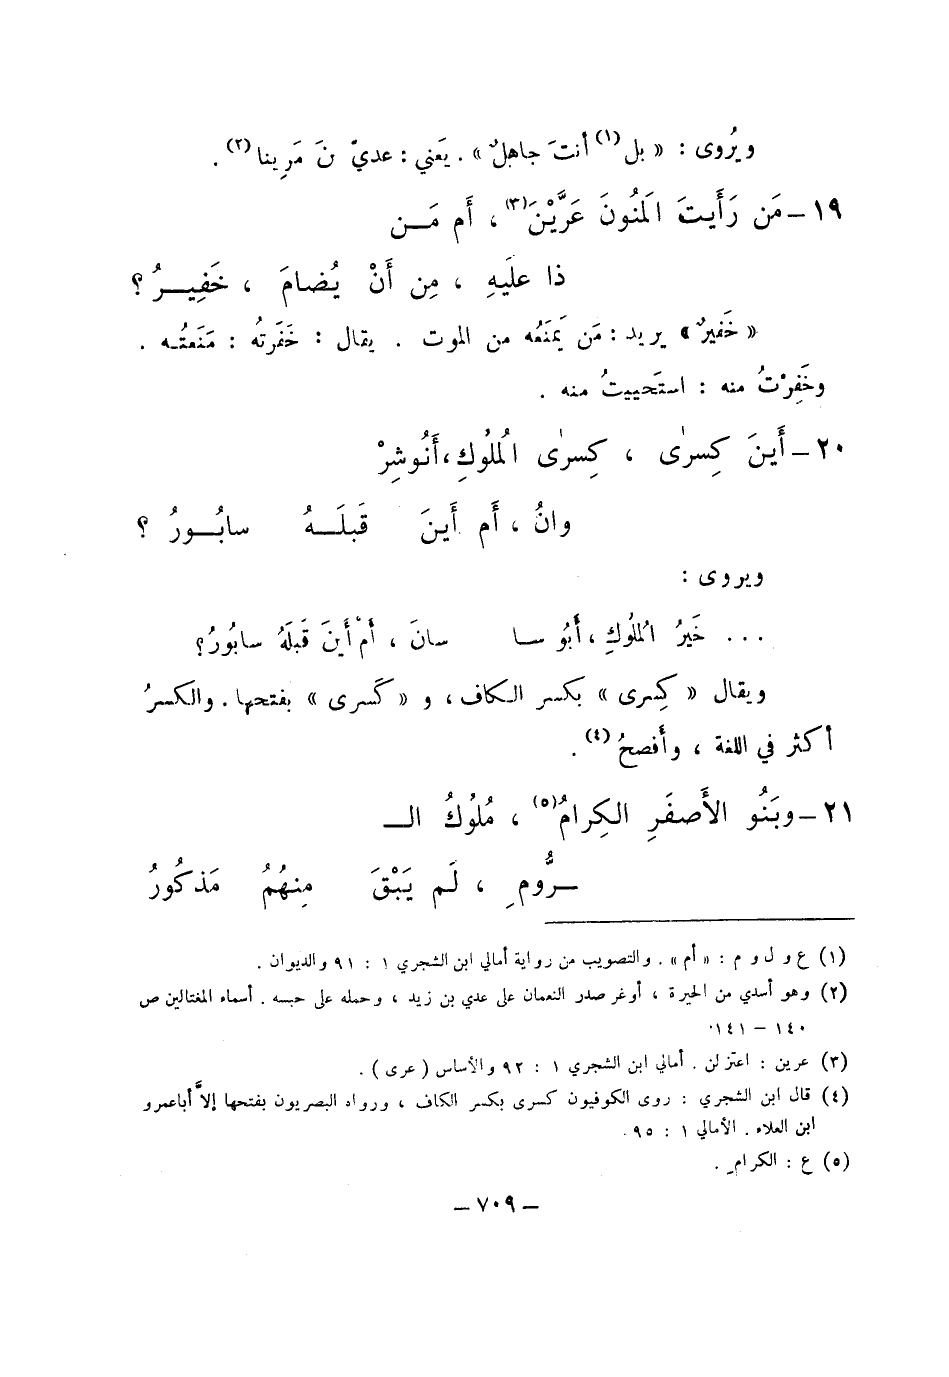 ويُروى : « بل(١) أنتَ جاهلٌ » . يَعني : عديّ نَ مَرِينا(٢) .
١٩ – مَن رَأَيتَ المَنُونَ عَرَّيْنَ(٣) ، أَم مَـن
ذا علَيهِ ، مِن أَنْ يُضامَ ، خَفِيـرُ ؟
« خَفيرٌ » يريد : مَن يَمنَعُه من الموت . يقال : خَفَرتُه : مَنَعتُـه .
وخَفِرْتُ منه : استَحييتُ منه .
٢٠ – أَينَ كِسرٰى ، كِسرٰى المُلُوكِ ، أَنُوشِرْ
وانُ ، أَم أَينَ قَبلَــهُ سابُــورُ ؟
ويروى :
... خَيرُ المُلُوكِ ، أَبُو سـا سانَ ، أَم أَينَ قَبلَهُ سابُورُ ؟
ويقال « كِسرى » بكسر الكاف ، و « كَسرى » بفتحها . والكسرُ
أكثر في اللغة ، وأَفصحُ(٤) .
٢١ – وبَنُو الأَصفَرِ الكِرامُ(٥) ، مُلُوكُ الـ
ـرُّومِ ، لَم يَبْقَ مِنهُمُ مَذكُورُ
(١) ع و ل و م : « أم » . والتصويب من رواية أمالي ابن الشجري ١ : ٩١ والديوان .
(٢) وهو أسدي من الحيرة ، أوغر صدر النعمان على عدي بن زيد ، وحمله على حبسه . أسماء المغتالين ص
١٤٠ – ١٤١ .
(٣) عرين : اعتزلن . أمالي ابن الشجري ١ : ٩٢ والأساس ( عرى ) .
(٤) قال ابن الشجري : روى الكوفيون كسرى بكسر الكاف ، ورواه البصريون بفتحها إلاَّ أباعمرو
ابن العلاء . الأمالي ١ : ٩٥ .
(٥) ع : الكرامِ .
– ٧٠٩ –